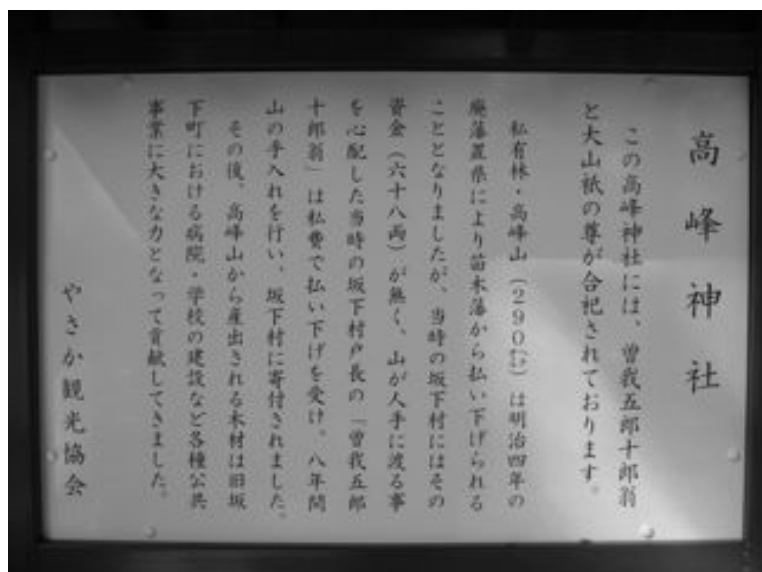 高峰神社
この高峰神社には、曽我五郎十郎翁
と大山祇の尊が合祀されております。
私有林・高峰山（290㌶）は明治四年の
廃藩置県により苗木藩から払い下げられる
こととなりましたが、当時の坂下村にはその
資金（六十八両）が無く、山が人手に渡る事
を心配した当時の坂下村戸長の「曽我五郎
十郎翁」は私費で払い下げを受け、八年間
山の手入れを行い、坂下村に寄付されました。
その後、高峰山から産出される木材は旧坂
下町における病院・学校の建設など各種公共
事業に大きな力となって貢献してきました。
やさか観光協会